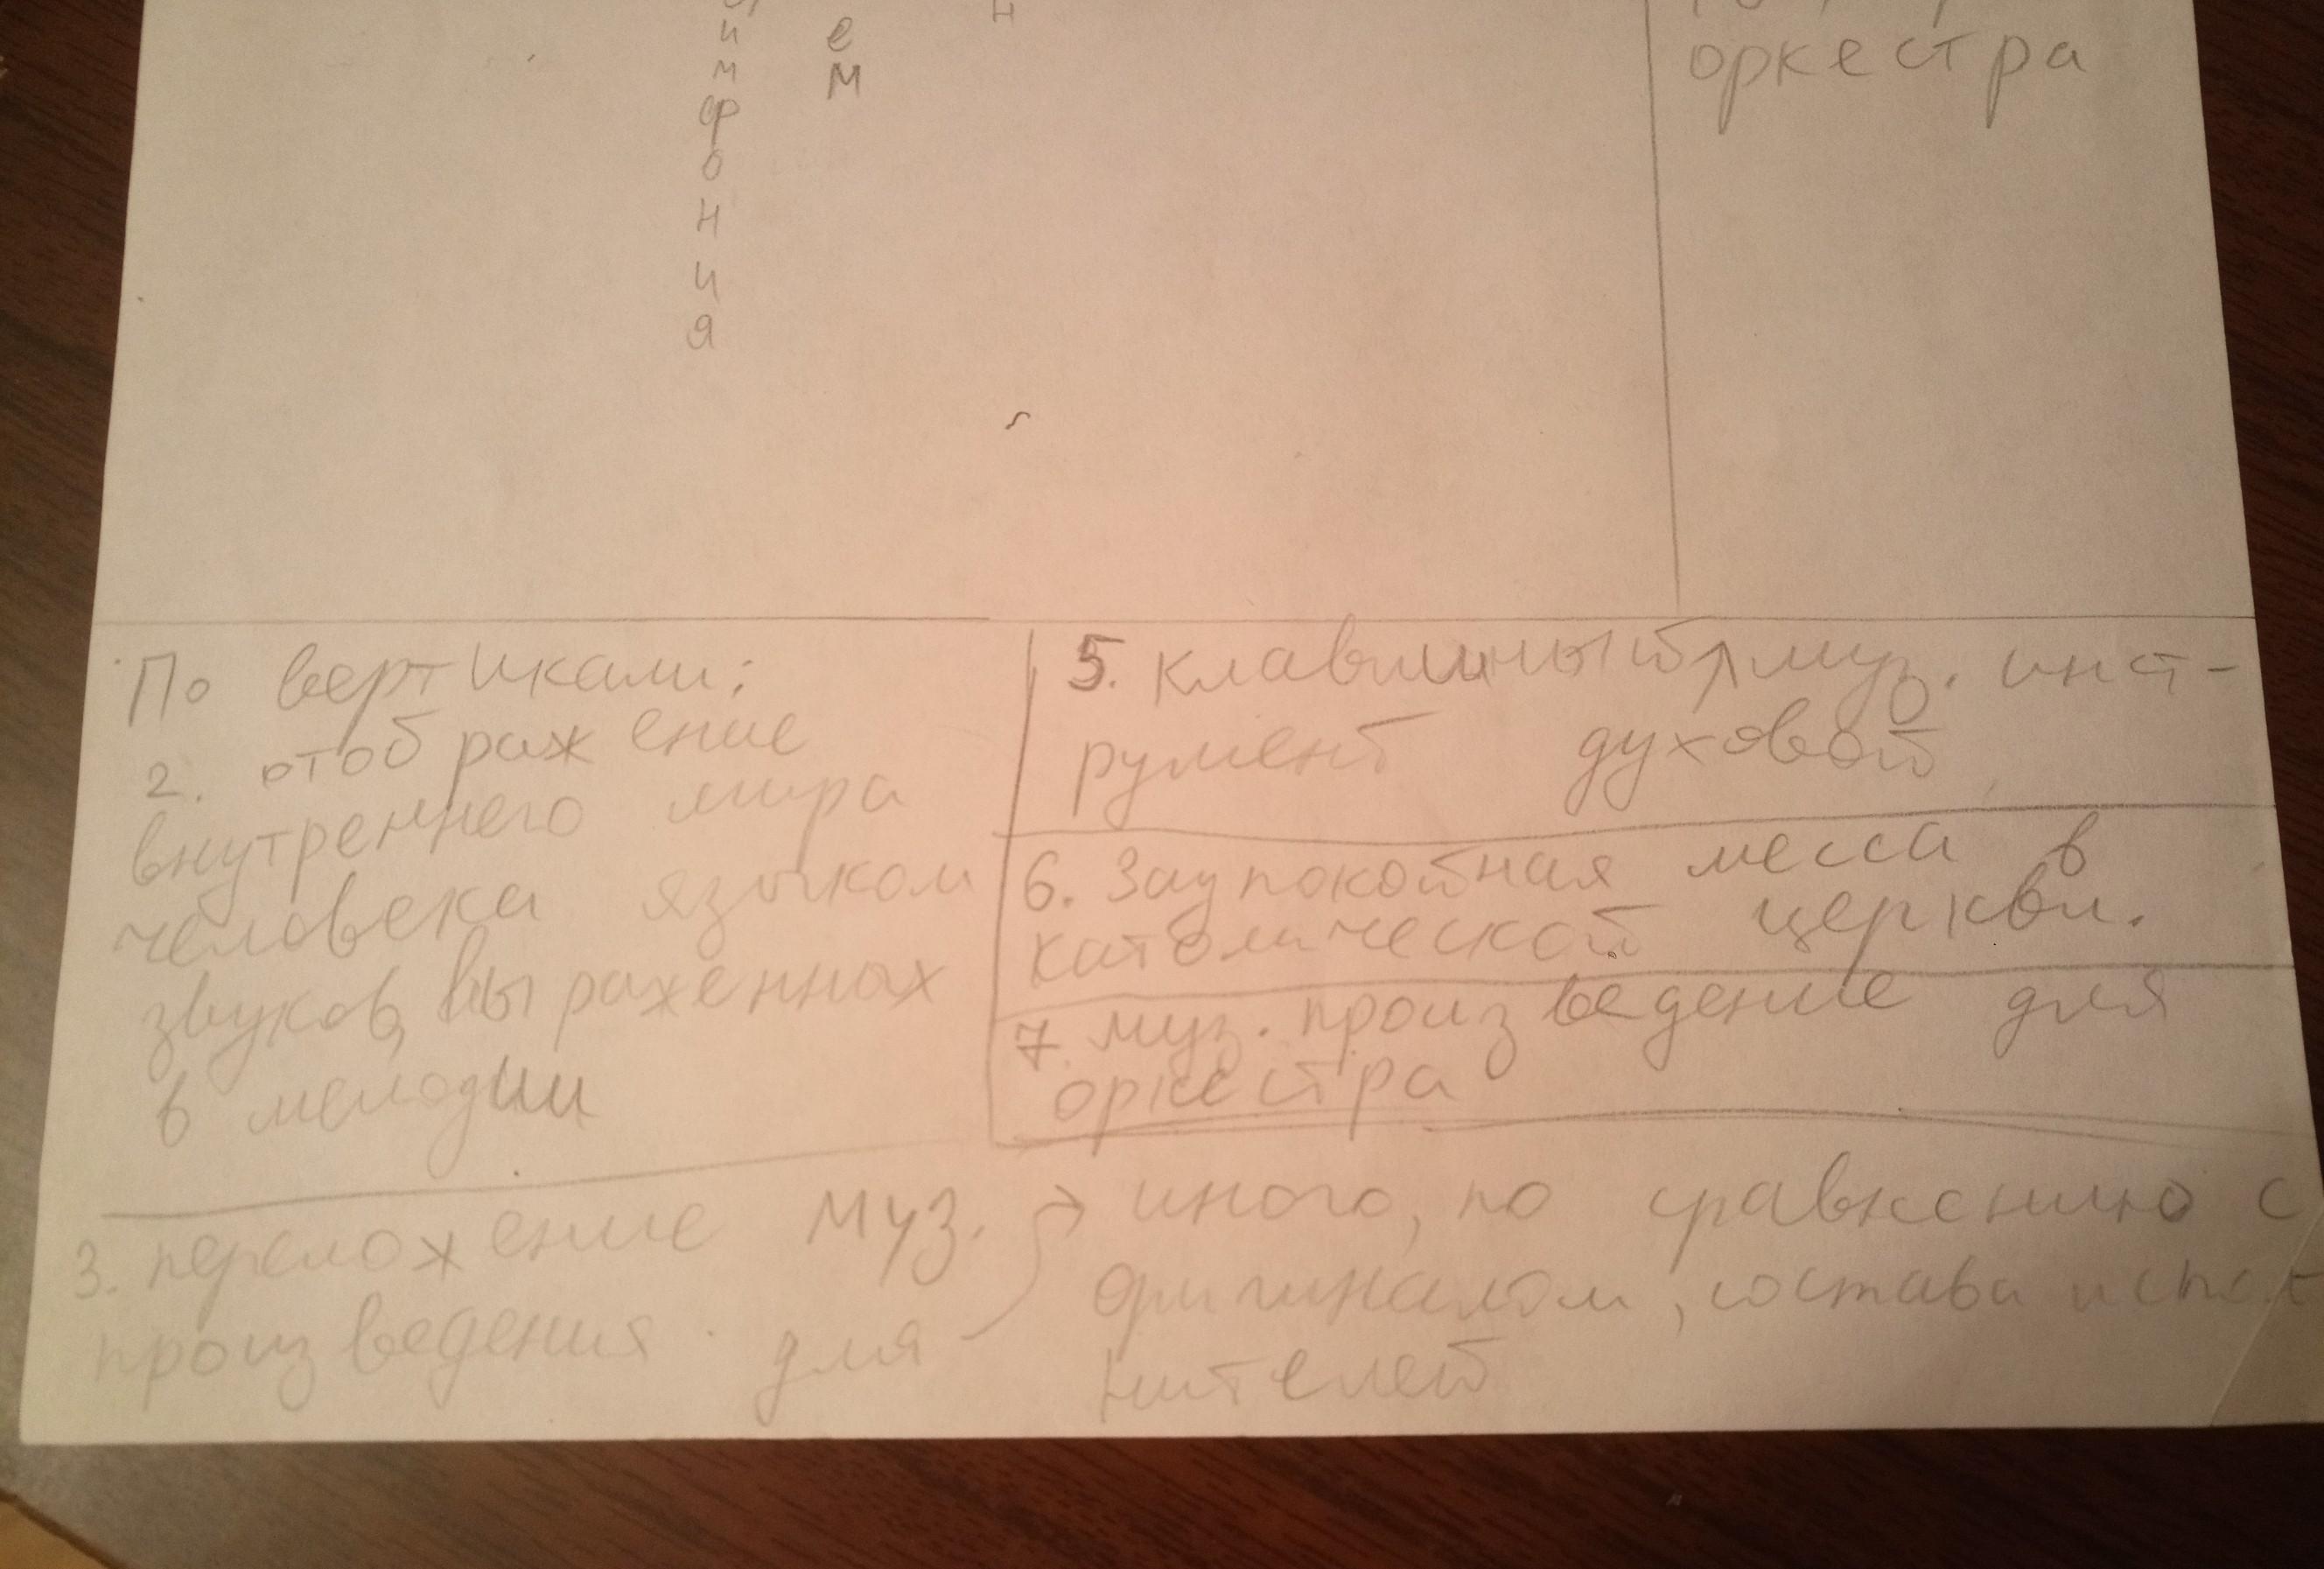 и
м
ф
о
н
и
я
е
м
н
оркестра
По вертикали:
2. отображение
внутреннего мира
человека языком
звуков, выраженных
в мелодии
3. переложение муз.
произведения для
иного, по сравнению с
оригиналом, состава испол
нителей
5. клавишный муз. инст-
румент духовой
6. Заупокойная месса в
католической церкви.
7. муз. произведение для
оркестра